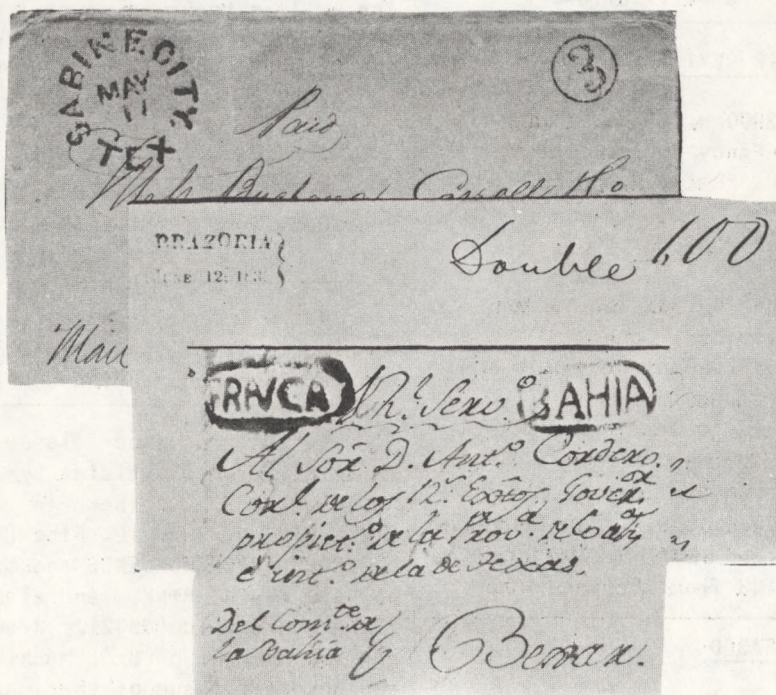 SABINE CITY
MAY
11
TEX
3
Paid
BRAZORIA
JUNE 12, 183
Double 100
FRANCA Rl. Servo. BAHIA
Al Sor. D. Anto. Cordero,
Corl. de los Rs. Extos, Goveror
propieto. de la Prova. de Coaha
e into. de la de Texas.
Del Comte. de
la Bahia
Bexar.